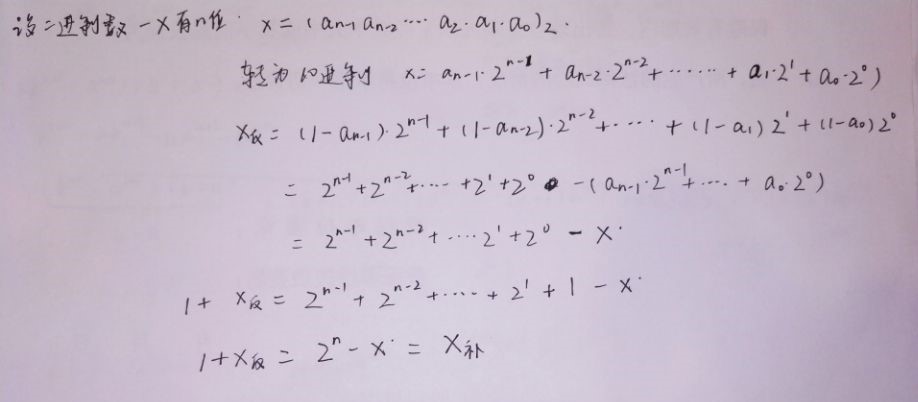 设二进制数-X有n位. X=(aₙ₋₁ aₙ₋₂ ⋯ a₂·a₁·a₀)₂.
转为10进制 X=aₙ₋₁·2ⁿ⁻¹+aₙ₋₂·2ⁿ⁻²+⋯⋯+a₁·2¹+a₀·2⁰)
X反=(1-aₙ₋₁)·2ⁿ⁻¹+(1-aₙ₋₂)·2ⁿ⁻²+⋯⋯+(1-a₁)2¹+(1-a₀)2⁰
=2ⁿ⁻¹+2ⁿ⁻²+⋯⋯+2¹+2⁰-(aₙ₋₁·2ⁿ⁻¹+⋯⋯+a₀·2⁰)
=2ⁿ⁻¹+2ⁿ⁻²+⋯2¹+2⁰-X·
1+X反=2ⁿ⁻¹+2ⁿ⁻²+⋯⋯+2¹+1-X·
1+X反=2ⁿ-X·=X补